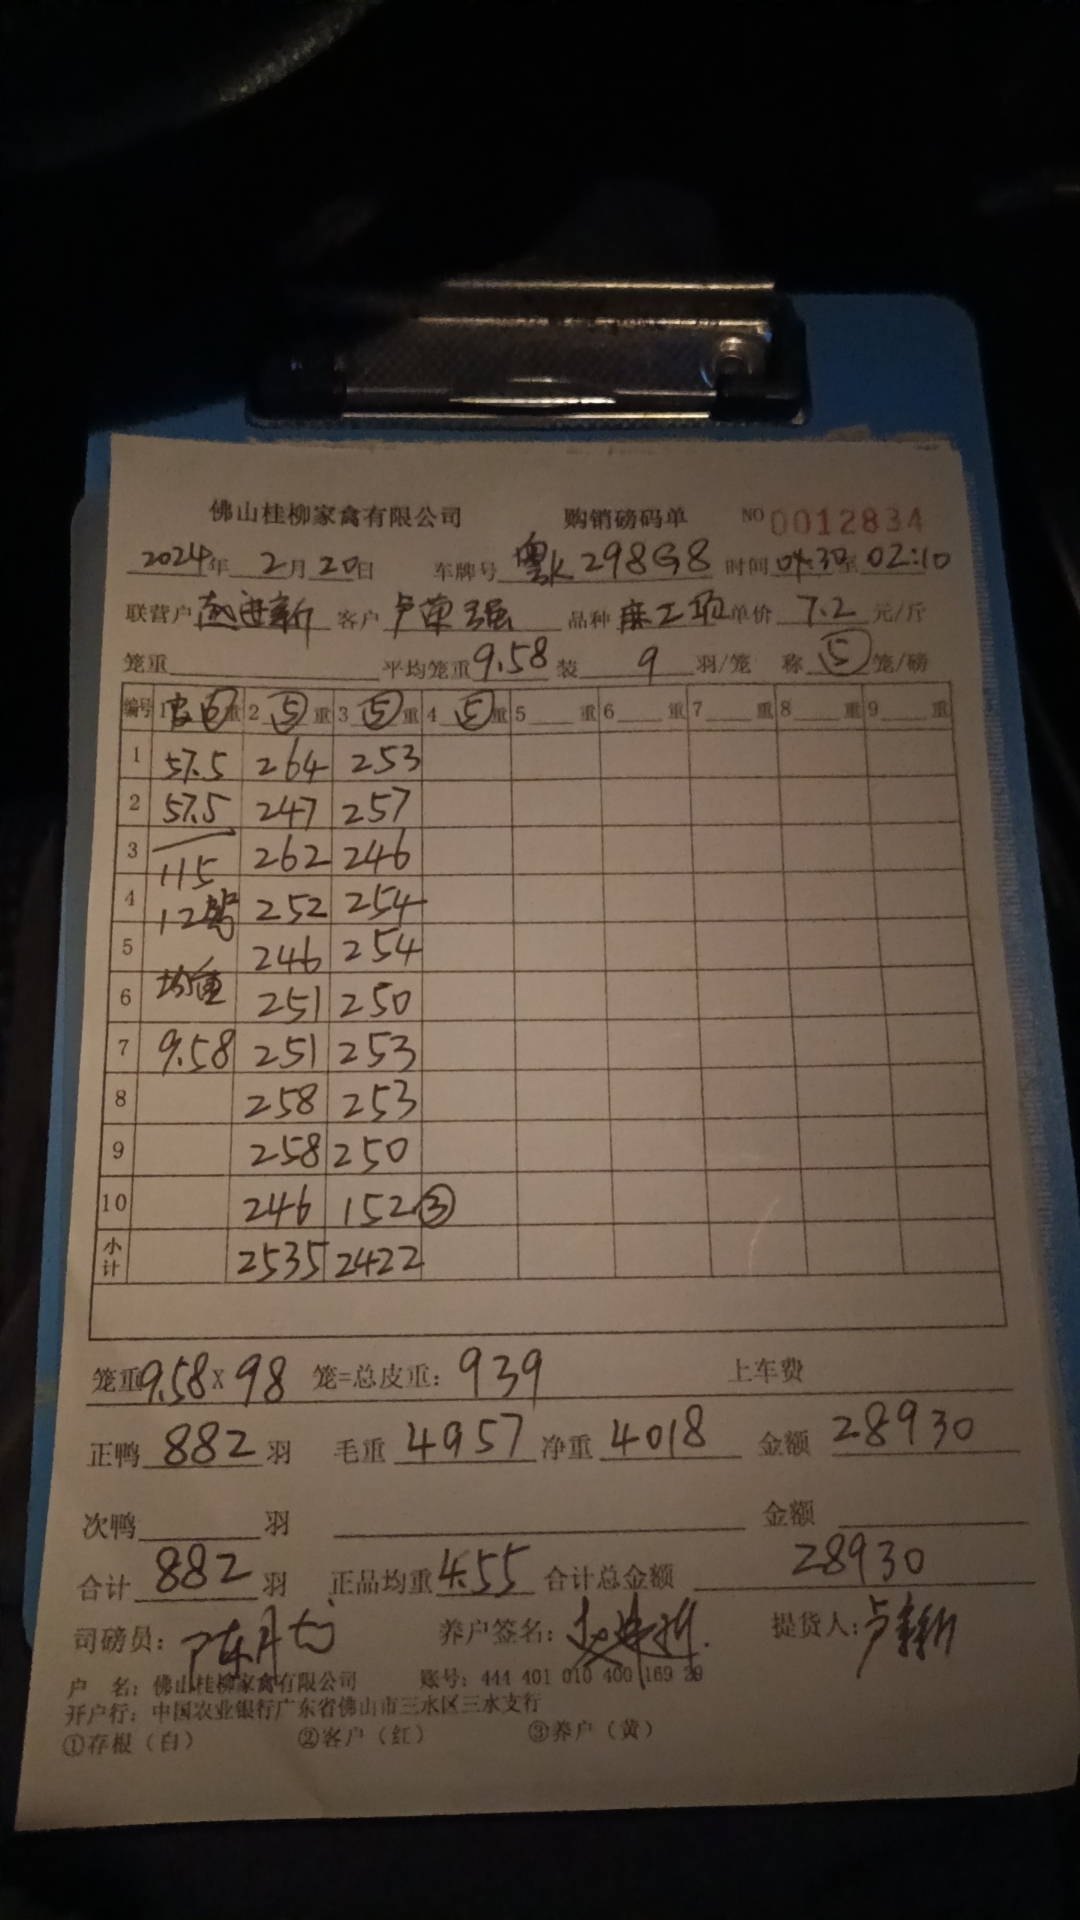 佛山桂柳家禽有限公司 购销磅码单 NO 0012834
2024年 2月20日 车牌号 粤K298G8 时间 01:30至02:10
联营户 进新 客户 卢荣强 品种 麻工 单价 7.2 元/斤
笼重 平均笼重 9.58 装 9 羽/笼 称 ⑤ 笼/磅
编号 1 皮⑥重 2 ⑤ 重 3 ⑤ 重 4 ⑤ 重 5 重 6 重 7 重 8 重 9 重
1 57.5 264 253
2 57.5 247 257
3 115 262 246
4 12 252 254
5 246 254
6 均重 251 250
7 9.58 251 253
8 258 253
9 258 250
10 246 152 ③
小计 2535 2422
笼重 9.58 X 98 笼=总皮重: 939 上车费
正鸭 882 羽 毛重 4957 净重 4018 金额 28930
次鸭 羽 金额
合计 882 羽 正品均重 4.55 合计总金额 28930
司磅员: 陈月 养户签名: 提货人: 卢
户 名: 佛山桂柳家禽有限公司 账号: 444 401 010 400 169 29
开户行: 中国农业银行广东省佛山市三水区三水支行
①存根（白） ②客户（红） ③养户（黄）